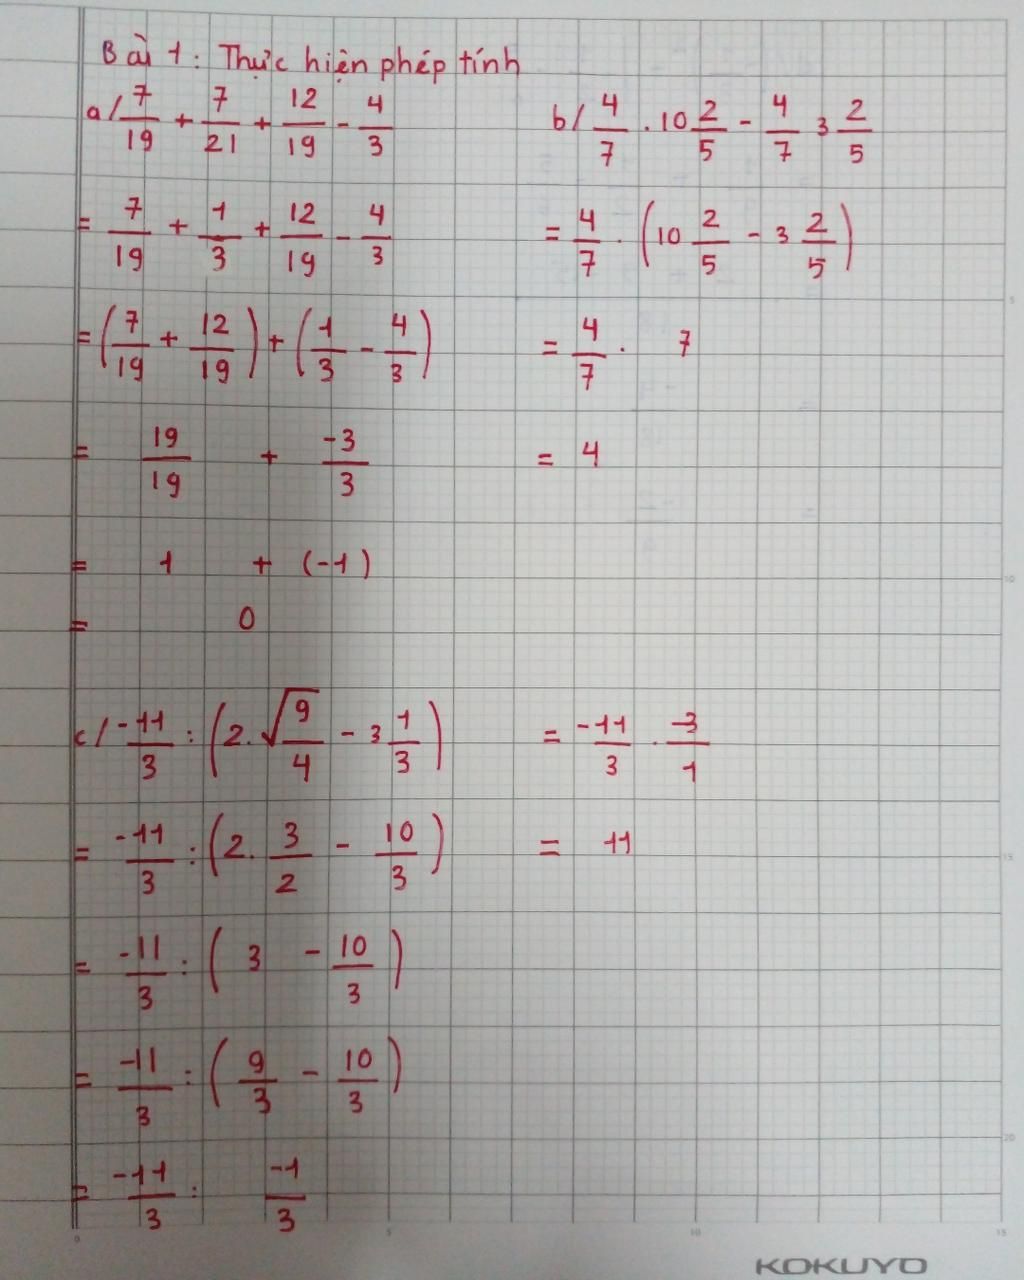 Bài 1: Thực hiện phép tính
a/ 7/19 + 7/21 + 12/19 - 4/3
= 7/19 + 1/3 + 12/19 - 4/3
= (7/19 + 12/19) + (1/3 - 4/3)
= 19/19 + -3/3
= 1 + (-1)
= 0
b/ 4/7 . 10 2/5 - 4/7 3 2/5
= 4/7 . (10 2/5 - 3 2/5)
= 4/7 . 7
= 4
c/ -11/3 : (2. √9/4 - 3 1/3)
= -11/3 : (2. 3/2 - 10/3)
= -11/3 : (3 - 10/3)
= -11/3 : (9/3 - 10/3)
= -11/3 : -1/3
= -11/3 . -3/1
= 11
5
10
15
20
0 5 10 15
KOKUYO